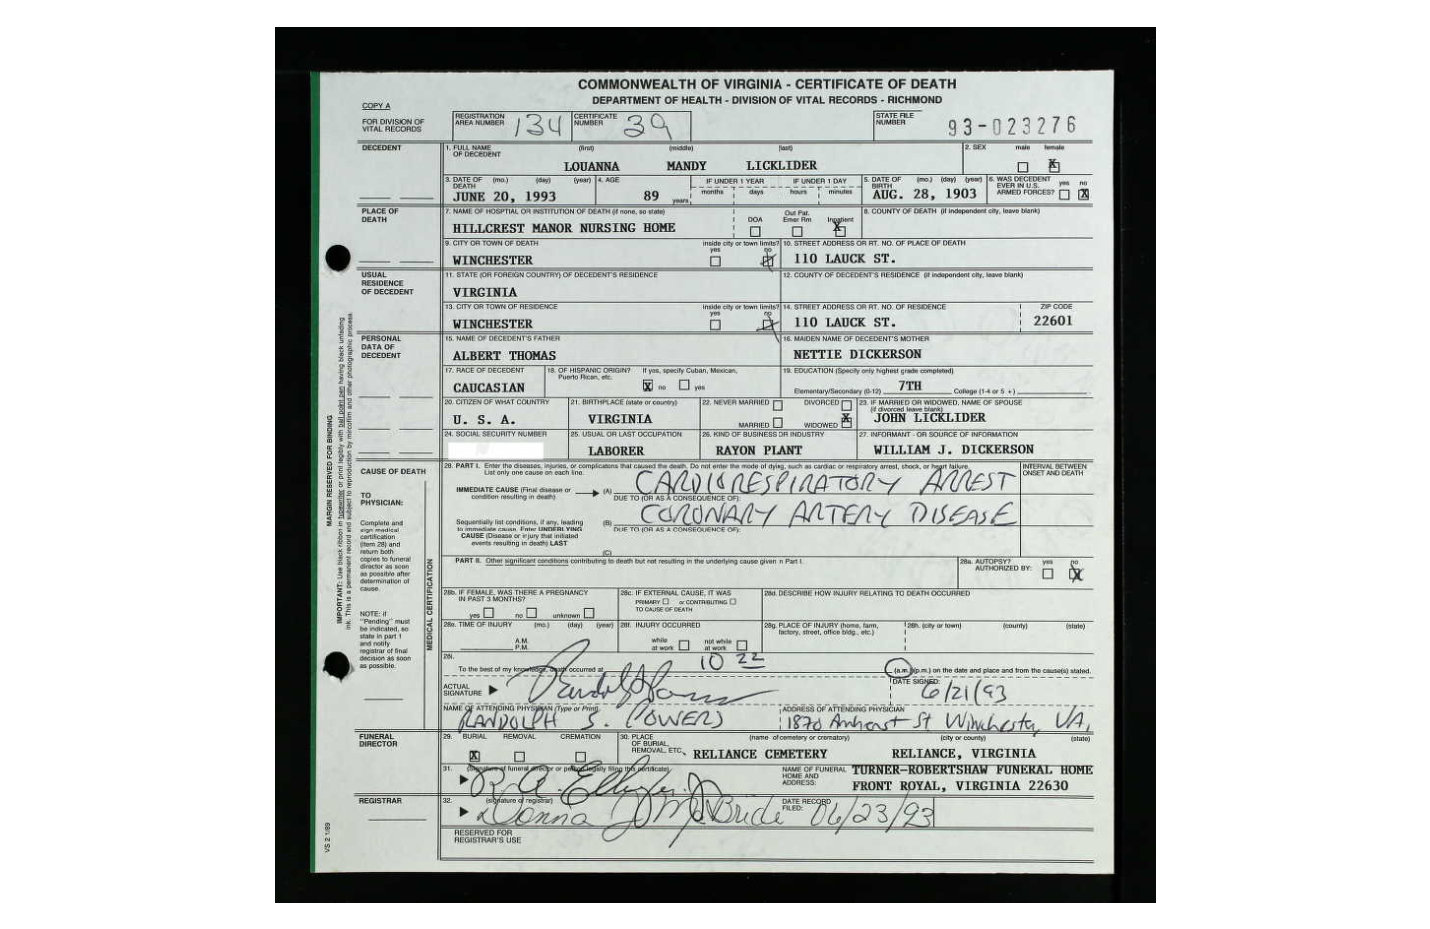 COMMONWEALTH OF VIRGINIA - CERTIFICATE OF DEATH
DEPARTMENT OF HEALTH - DIVISION OF VITAL RECORDS - RICHMOND
COPY A
FOR DIVISION OF VITAL RECORDS
REGISTRATION AREA NUMBER 134 CERTIFICATE NUMBER 39 STATE FILE NUMBER 93-023276
DECEDENT
1. FULL NAME OF DECEDENT (first) (middle) (last) 2. SEX male female
LOUANNA MANDY LICKLIDER X
3. DATE OF DEATH (mo.) (day) (year) 4. AGE IF UNDER 1 YEAR IF UNDER 1 DAY 5. DATE OF BIRTH (mo.) (day) (year) 6. WAS DECEDENT EVER IN U.S. ARMED FORCES? yes no
JUNE 20, 1993 89 years months days hours minutes AUG. 28, 1903 X
PLACE OF DEATH
7. NAME OF HOSPTIAL OR INSTITUTION OF DEATH (if none, so state) DOA Out Pat. Emer Rm Inpatient 8. COUNTY OF DEATH (if independent city, leave blank)
HILLCREST MANOR NURSING HOME X
9. CITY OR TOWN OF DEATH inside city or town limits? yes no 10. STREET ADDRESS OR RT. NO. OF PLACE OF DEATH
WINCHESTER 110 LAUCK ST.
USUAL RESIDENCE OF DECEDENT
11. STATE (OR FOREIGN COUNTRY) OF DECEDENT'S RESIDENCE 12. COUNTY OF DECEDENT'S RESIDENCE (if independent city, leave blank)
VIRGINIA
13. CITY OR TOWN OF RESIDENCE inside city or town limits? yes no 14. STREET ADDRESS OR RT. NO. OF RESIDENCE ZIP CODE
WINCHESTER 110 LAUCK ST. 22601
PERSONAL DATA OF DECEDENT
15. NAME OF DECEDENT'S FATHER 16. MAIDEN NAME OF DECEDENT'S MOTHER
ALBERT THOMAS NETTIE DICKERSON
17. RACE OF DECEDENT 18. OF HISPANIC ORIGIN? If yes, specify Cuban, Mexican, Puerto Rican, etc. 19. EDUCATION (Specify only highest grade completed)
CAUCASIAN X no yes Elementary/Secondary (0-12) 7TH College (1-4 or 5 +)
20. CITIZEN OF WHAT COUNTRY 21. BIRTHPLACE (state or country) 22. NEVER MARRIED DIVORCED 23. IF MARRIED OR WIDOWED, NAME OF SPOUSE (if divorced leave blank)
U. S. A. VIRGINIA MARRIED WIDOWED X JOHN LICKLIDER
24. SOCIAL SECURITY NUMBER 25. USUAL OR LAST OCCUPATION 26. KIND OF BUSINESS OR INDUSTRY 27. INFORMANT - OR SOURCE OF INFORMATION
LABORER RAYON PLANT WILLIAM J. DICKERSON
CAUSE OF DEATH
28. PART I. Enter the diseases, injuries, or complications that caused the death. Do not enter the mode of dying, such as cardiac or respiratory arrest, shock, or heart failure. List only one cause on each line. INTERVAL BETWEEN ONSET AND DEATH
IMMEDIATE CAUSE (Final disease or condition resulting in death) (A) CARDIORESPIRATORY ARREST
DUE TO (OR AS A CONSEQUENCE OF):
Sequentially list conditions, if any, leading to immediate cause. Enter UNDERLYING CAUSE (Disease or injury that initiated events resulting in death) LAST (B) CORONARY ARTERY DISEASE
DUE TO (OR AS A CONSEQUENCE OF):
(C)
PART II. Other significant conditions contributing to death but not resulting in the underlying cause given in Part I. 28a. AUTOPSY? AUTHORIZED BY: yes no X
TO PHYSICIAN:
Complete and sign medical certification (item 28) and return both copies to funeral director as soon as possible after determination of cause.
NOTE: if "Pending" must be indicated, so state in part 1 and notify registrar of final decision as soon as possible.
MEDICAL CERTIFICATION
MARGIN RESERVED FOR BINDING
IMPORTANT: Use black ribbon in typewriter or print legibly with ball point pen having black unfading ink. This is a permanent record and subject to reproduction by microfilm and other photographic process.
28b. IF FEMALE, WAS THERE A PREGNANCY IN PAST 3 MONTHS? yes no unknown 28c. IF EXTERNAL CAUSE, IT WAS PRIMARY or CONTRIBUTING TO CAUSE OF DEATH 28d. DESCRIBE HOW INJURY RELATING TO DEATH OCCURRED
28e. TIME OF INJURY (mo.) (day) (year) A.M. P.M. 28f. INJURY OCCURRED while at work not while at work 28g. PLACE OF INJURY (home, farm, factory, street, office bldg., etc.) 28h. (city or town) (county) (state)
28i. To the best of my knowledge, death occurred at 10 22 (a.m.) (p.m.) on the date and place and from the cause(s) stated.
ACTUAL SIGNATURE DATE SIGNED: 6/21/93
NAME OF ATTENDING PHYSICIAN (Type or Print) ADDRESS OF ATTENDING PHYSICIAN
RANDOLPH S. POWERS 1870 Amherst St Winchester, VA.
FUNERAL DIRECTOR
29. BURIAL REMOVAL CREMATION 30. PLACE OF BURIAL, REMOVAL, ETC. (name of cemetery or crematory) (city or county) (state)
X RELIANCE CEMETERY RELIANCE, VIRGINIA
31. (Signature of funeral director or person legally filing this certificate) NAME OF FUNERAL HOME AND ADDRESS: TURNER-ROBERTSHAW FUNERAL HOME
FRONT ROYAL, VIRGINIA 22630
REGISTRAR
32. (signature of registrar) Donna J McBride DATE RECORD FILED: 06/23/93
RESERVED FOR REGISTRAR'S USE
VS 2 1/89